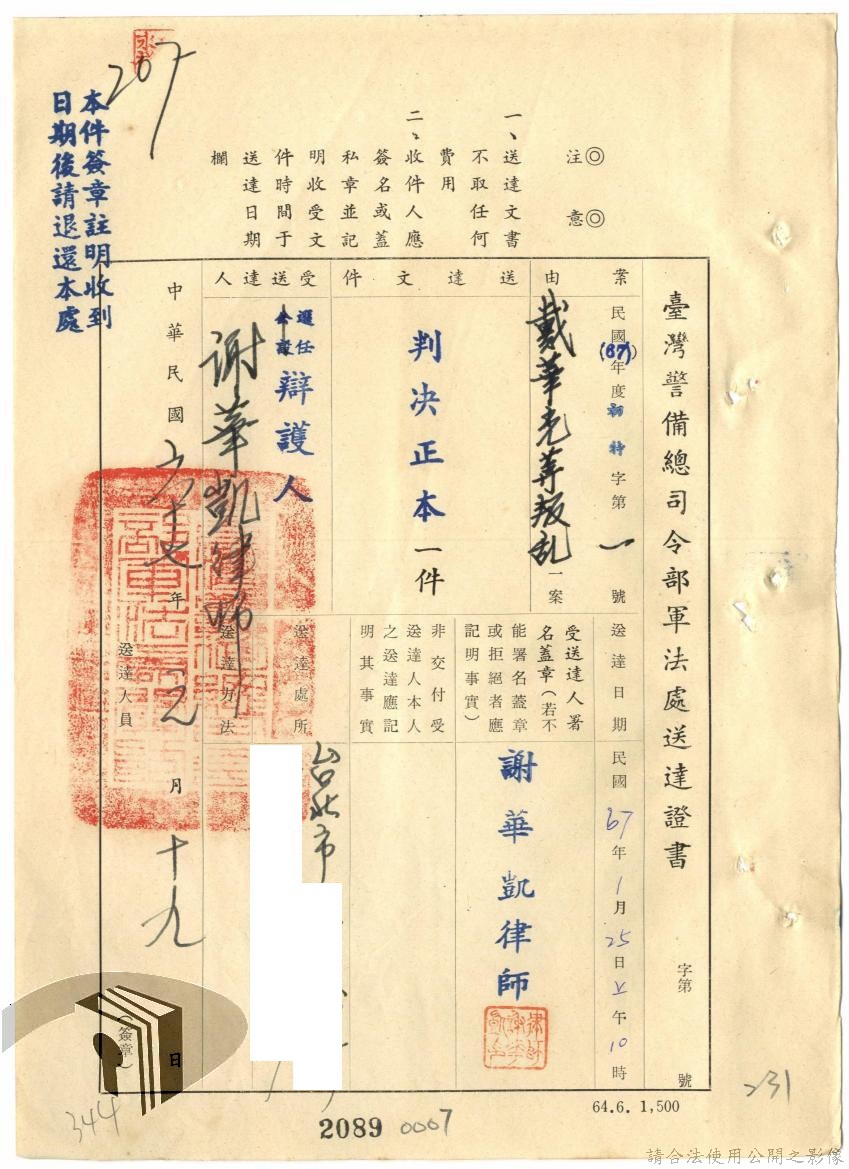 207
本件簽章註明收到
日期後請退還本處
◎注意◎
一、送達文書
不取任何
費用
二、收件人應
簽名或蓋
私章並記
明收受文
件時間于
送達日期
欄
臺灣警備總司令部軍法處送達證書
字第 號
案由
民國(67)年度初特字第一號
戴華光等叛乱一案
送達文件
判決正本一件
受送達人
選任
公設
辯護人
謝華凱律師
送達日期
民國67年1月25日上午10時
受送達人署
名蓋章(若不
能署名蓋章
或拒絕者應
記明事實)
謝華凱律師
非交付受
送達人本人
之送達應記
明其事實
送達處所
台北市
送達方法
中華民國六十七年元月十九日
送達人員
(簽章)
64.6. 1,500
231
344
2089 0007
請合法使用公開之影像